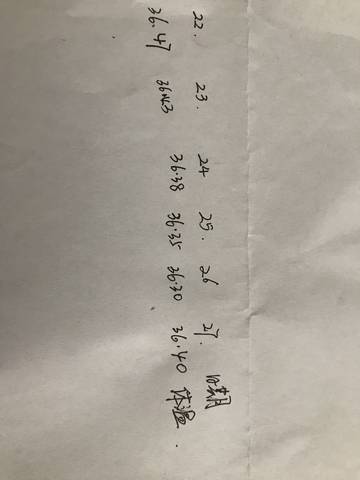 22. 23. 24 25. 26 27. 日期
36.47 36.43 36.38 36.35 36.30 36.40 体温.